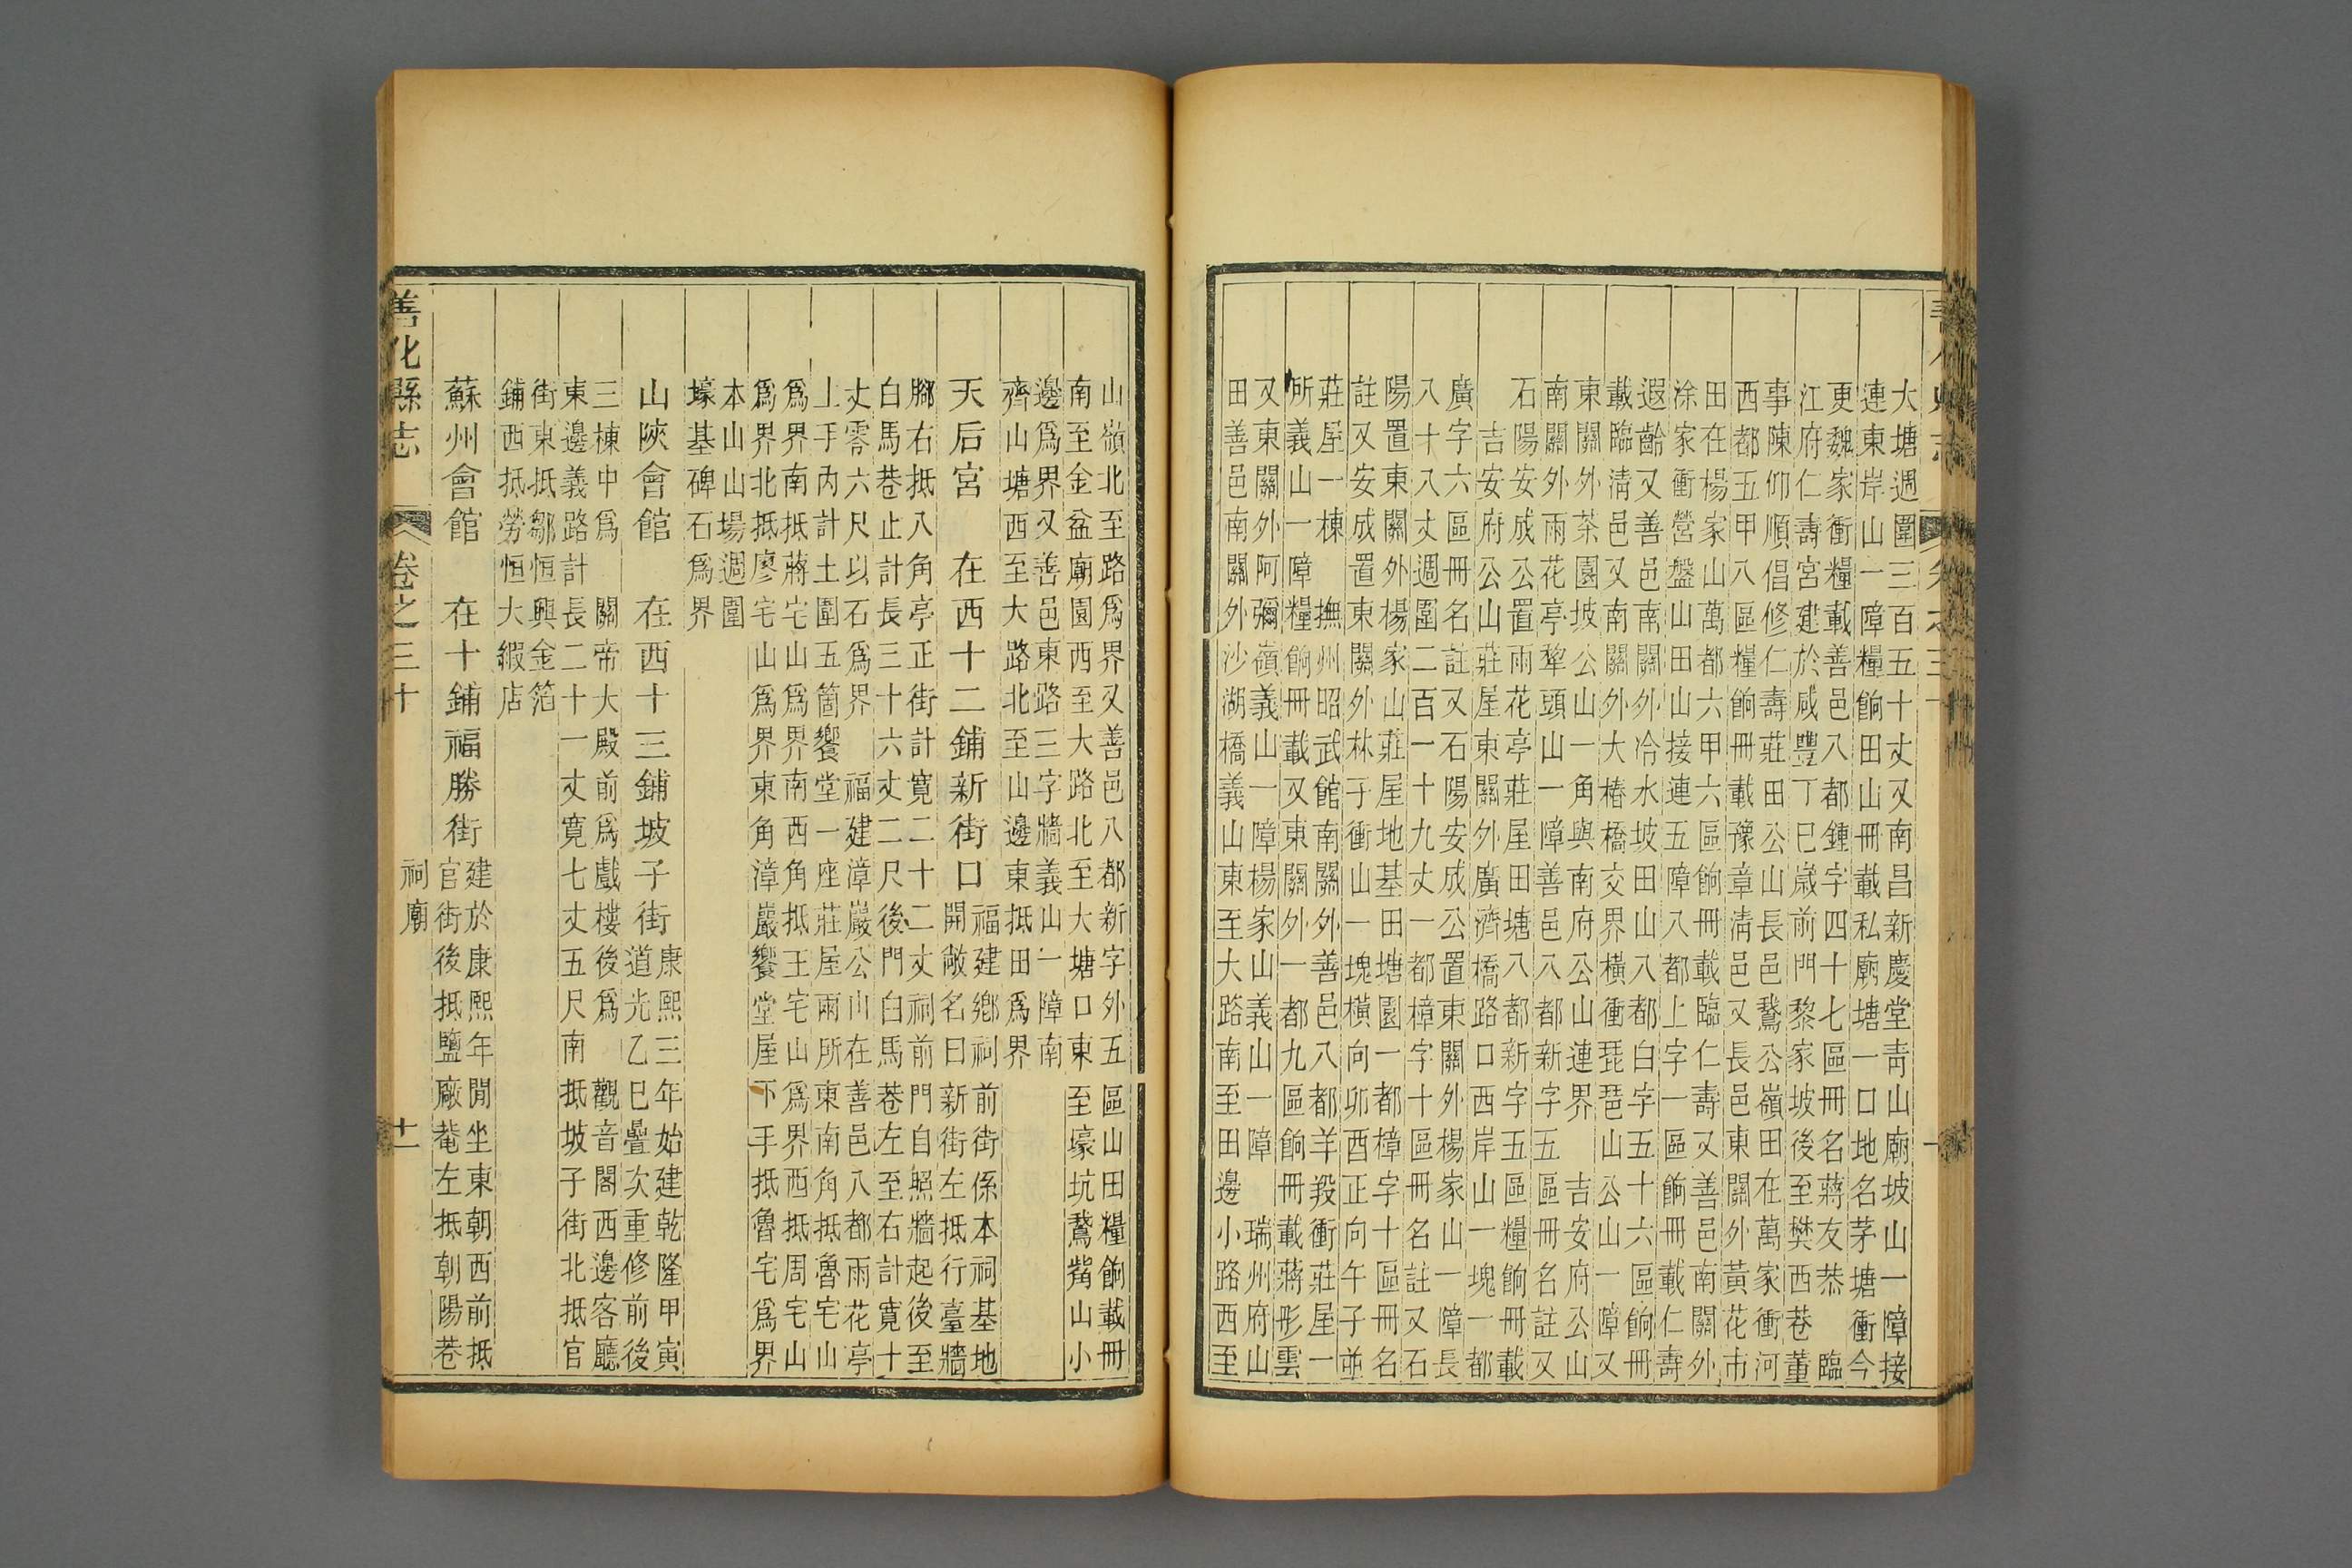 大塘週圍三百五十丈又南昌新慶堂靑山廟坡山一障接
連東岸山一障糧餉田山冊載私廟塘一口地名茅塘衝今
更魏家衝糧載善邑八都鍾字四十七區冊名蔣友恭　臨
江府仁壽宮建於咸豐丁巳歲前門黎家坡後至樊西巷董
事陳仰順倡修仁壽莊田公山長邑鵞公嶺田在萬家衝河
西都五甲八區糧餉冊載豫章清邑又長邑東關外黃花市
田在楊家山萬都六甲六區餉冊載臨仁壽又善邑南關外
涂家衝營盤山田山接連五障八都上字一區餉冊載仁壽
遐齡又善邑南關外冷水坡田山八都白字五十六區餉冊
載臨淸邑又南關外大椿橋交界橫衝琵琶山公山一障又
東關外茶園坡公山一角與南府公山連界　吉安府公山
南關外雨花亭犂頭山一障善邑八都新字五區冊名註又
石陽安成公置雨花亭莊屋田塘八都新字五區糧餉冊載
吉安府公山莊屋東關外廣濟橋路口西岸山一塊一都
廣字六區冊名註又石陽安成公置東關外楊家山一障長
八十八丈週圍二百一十九丈一都樟字十區冊名註又石
陽置東關外楊家山莊屋地基田塘園一都樟字十區冊名
註又安成置東關外林子衝山一塊橫向卯酉正向午子並
莊屋一棟　撫州昭武館南關外善邑八都羊投衝莊屋一
所義山一障糧餉冊載又東關外一都九區餉冊載蔣形雲
又東關外阿彌嶺義山一障楊家山義山一障　瑞州府山
田善邑南關外沙湖橋義山東至大路南至田邊小路西至
山嶺北至路爲界又善邑八都新字外五區山田糧餉載冊
南至金盆廟園西至大路北至大塘口東至壕坑鵞觜山小
邊爲界又善邑東路三字牆義山一障南
齊山塘西至大路北至山邊東抵田爲界
天后宮　在西十二鋪新街口
福建鄉祠前街係本祠基地
開敞名曰新街左抵行臺牆
腳右抵八角亭正街計寬二十二丈祠前門自照牆起後至
白馬巷止計長三十六丈二尺後門白馬巷左至右計寬十
丈零六尺以石爲界　福建漳巖公山在善邑八都雨花亭
上手內計土圍五箇饗堂一座莊屋兩所東南角抵魯宅山
爲界南抵蔣宅山爲界南西角抵王宅山爲界西抵周宅山
爲界北抵廖宅山爲界東角漳巖饗堂屋下手抵魯宅爲界
本山山場週圍
壕基碑石爲界
山陝會館　在西十三鋪坡子街
康熙三年始建乾隆甲寅
道光乙巳疊次重修前後
三棟中爲　關帝大殿前爲戲樓後爲　觀音閣西邊客廳
東邊義路計長二十一丈寬七丈五尺南抵坡子街北抵官
街東抵鄒恒興金箔
鋪西抵勞恒大緞店
蘇州會館　在十鋪福勝街
建於康熙年閒坐東朝西前抵
官街後抵鹽廠菴左抵朝陽巷
善化縣志　卷之三十　祠廟　十一